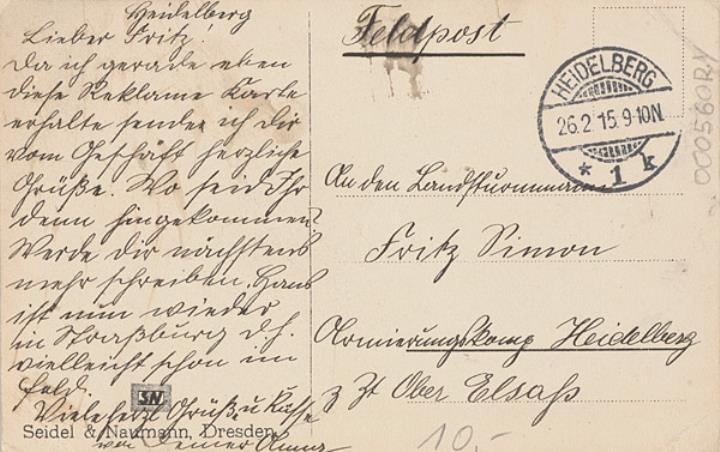 Heidelberg
Lieber Fritz!
Da ich gerade eben
diese Reklame Karte
erhalte sende ich dir
vom Geschäft herzliche
Grüße. Wo seid Ihr
denn hingekommen?
Werde dir nächstens
mehr schreiben. Hans
ist nun wieder
in Straßburg d.h.
vielleicht schon im
Feld.
Viele herzl. Grüße u Küsse
von Deiner
SN
Seidel & Naumann, Dresden
Feldpost
HEIDELBERG
26.2.15.9-10N.
* 1 k
An den Landsturmmann
Fritz Simon
Armierungskomp Heidelberg
z Zt Ober Elsaß
10,-